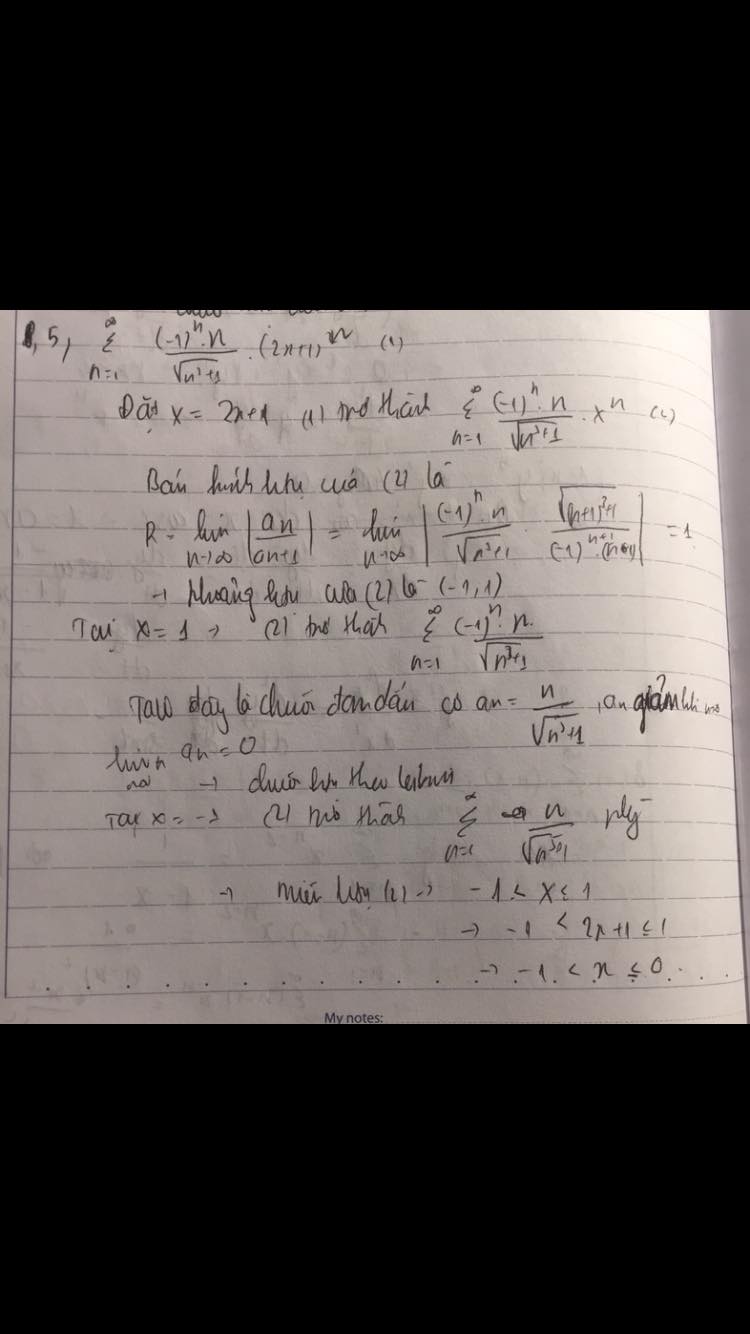 5, ∞ Σ n=1 (-1)^n . n / √(n³+1) . (2x+1)^n (1)
Đặt X = 2x+1 (1) trở thành ∞ Σ n=1 (-1)^n . n / √(n³+1) . X^n (2)
Bán kính htụ của (2) là
R = lim n→∞ |an / an+1| = lim n→∞ |(-1)^n . n / √(n³+1) . √((n+1)³+1) / (-1)^(n+1) . (n+1)| = 1
→ khoảng htụ của (2) là (-1, 1)
Tại X = 1 → (2) trở thành ∞ Σ n=1 (-1)^n . n / √(n³+1)
Ta có đây là chuỗi đan dấu có an = n / √(n³+1) , an giảm khi n→∞
lim n→∞ an = 0
→ chuỗi htụ theo leibniz
Tại X = -1 (2) trở thành ∞ Σ n=1 n / √(n³+1) pkỳ
→ miền htụ (2) → -1 < X ≤ 1
→ -1 < 2x+1 ≤ 1
→ -1 < x ≤ 0
My notes: